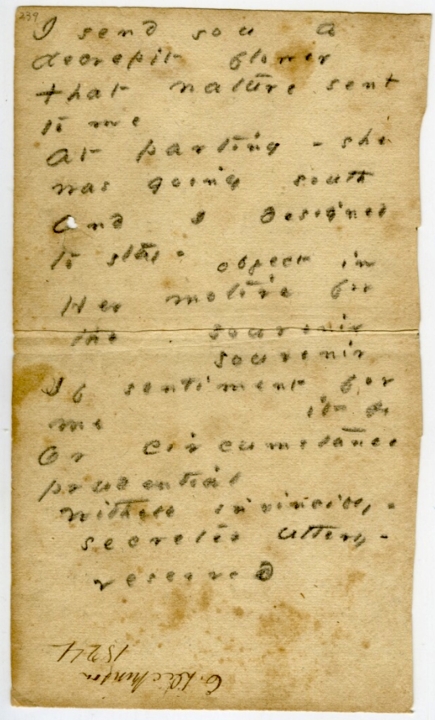 I send you a
decrepit flower
that nature sent
to me
At parting - she
was going south
And I designed
to stay -
object in
Her motive for
the souvenir
souvenir
If sentiment for
me
Or circumstance
prudential
Withheld invincibly -
secretes utterly -
reserved
E. Dickinson